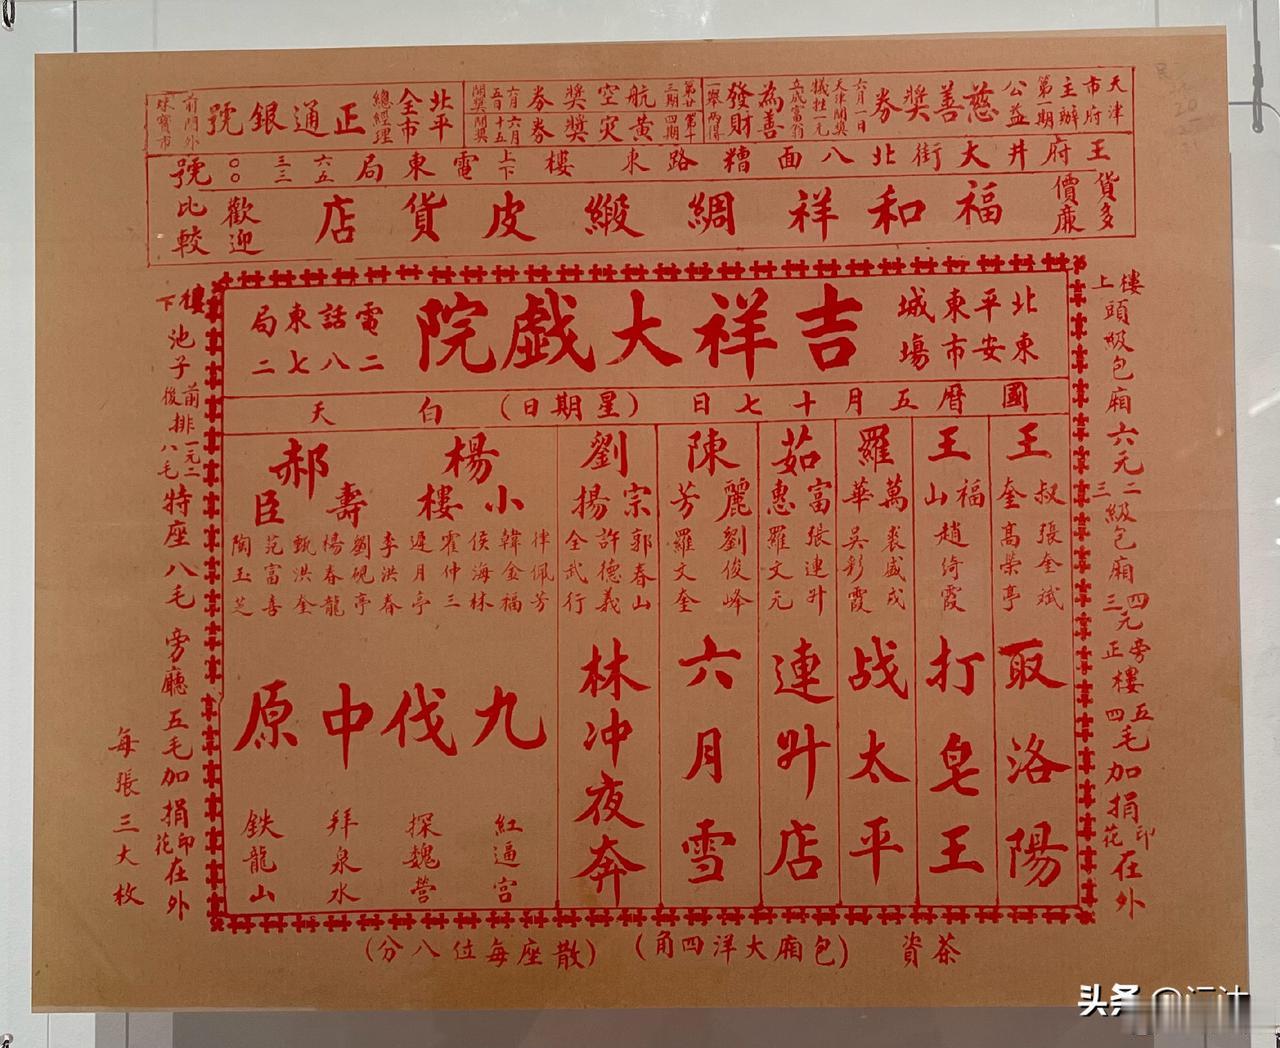 天津市政府主辦第一期公益慈善獎券
六月一日天津開獎
犧牲一元立成富翁
為善發財一舉兩得
航空獎券第廿三期六月五日開獎
黃灾獎券第十四期六月十五開獎
北平全市總經理正通銀號前門外珠寶市
王府井大街北八面糟路東樓上下電東局六三〇五三〇號
貨多價廉福和祥綢緞皮貨店歡迎比較
北平東城東安市場
吉祥大戲院
電話東局二八七二
國曆五月十七日(星期日)白天
王叔奎張奎斌高榮亭
取洛陽
王福山趙綺霞
打皂王
羅萬華裘盛戎吳彩霞
战太平
茹富惠張連升羅文元
連升店
陳麗芳劉俊峰羅文奎
六月雪
劉宗揚郭春山許德義全武行
林冲夜奔
楊小樓
郝壽臣
律佩芳
韓金福
侯海林
霍仲三
遲月亭
李洪春
劉硯亭
楊春龍
甄洪奎
范富喜
陶玉芝
九伐中原
紅逼宮
探魏營
拜泉水
鉄龍山
樓上頭級包廂六元二三級包廂四元三旁樓五正樓四毛加捐印花在外
樓下池子前排一元二後排八毛特座八毛旁廳五毛加捐印花在外
每張三大枚
茶資(包廂大洋四角)(散座每位八分)
头条